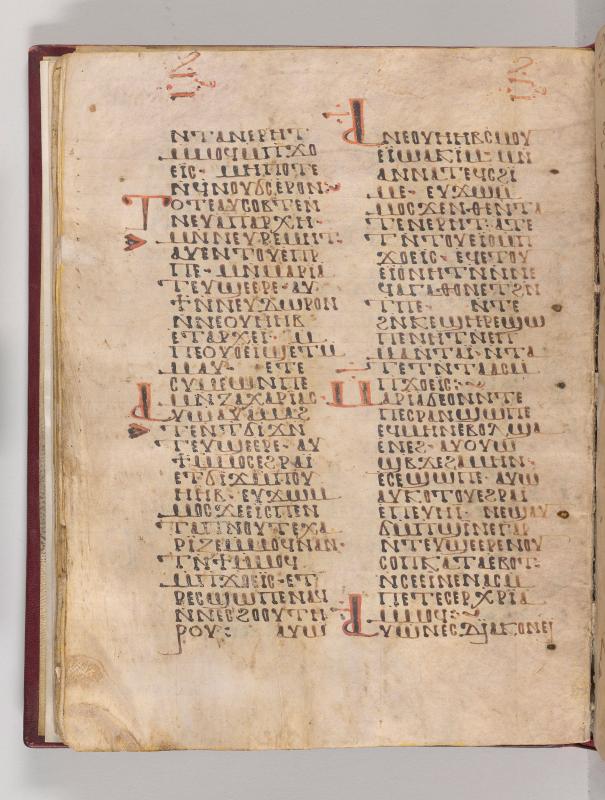 ⲛⲧⲁⲛⲉⲣⲏⲧ
ⲙⲙⲟϥⲙⲡϫⲟ
ⲉⲓⲥ· ⲙⲏⲡⲟⲧⲉ
ⲛϥⲛⲟⲩϭⲥⲉⲣⲟⲛ:
ⲧⲟⲧⲉⲁⲩⲥⲟⲃⲧⲉⲛ
ⲛⲉⲩⲁⲡⲁⲣⲭⲏ·
ⲙⲛⲛⲉⲩⲣⲉⲙⲏⲧ:
ⲁⲩⲉⲛⲧⲟⲩⲉⲡⲣ
ⲡⲉ· ⲙⲛⲙⲁⲣⲓⲁ
ⲧⲉⲩϣⲉⲉⲣⲉ· ⲁⲩ
ϯⲛⲛⲉⲩⲇⲱⲣⲟⲛ
ⲛⲛⲉⲟⲩⲏⲏⲃ
ⲉⲧⲁⲣⲭⲉⲓ· ⲙ
ⲡⲉⲟⲩⲟⲉⲓϣⲉⲧⲙ
ⲙⲁⲩ· ⲉⲧⲉ
ⲥⲩⲙⲉⲱⲛⲡⲉ
ⲙⲛⲍⲁⲭⲁⲣⲓⲁⲥ
ⲁⲩⲱⲁⲩⲁⲙⲁϩ
ⲧⲉⲛⲧϭⲓϫⲛ
ⲧⲉⲩϣⲉⲉⲣⲉ· ⲁⲩ
ϯⲙⲙⲟⲥⲉϩⲣⲁⲓ
ⲉⲧϭⲓϫⲙⲡⲟⲩ
ⲏⲏⲃ· ⲉⲩϫⲱⲙ
ⲙⲟⲥϫⲉⲉⲓⲥⲡⲉⲛ
ⲧⲁⲡⲛⲟⲩⲧⲉⲭⲁ
ⲣⲓⲍⲉⲙⲙⲟϥⲛⲁⲛ·
ⲧⲛϯⲙⲙⲟϥ
ⲙⲡϫⲟⲉⲓⲥ· ⲉⲧ
ⲣⲉⲥϣⲱⲡⲉⲛⲁϥ
ⲛⲛⲉϩⲟⲟⲩⲧⲏ
ⲣⲟⲩ: ⲁⲩⲱ
ⲁⲛⲉⲟⲩⲏⲏⲃⲥⲙⲟⲩ
ⲉⲓⲱⲁⲕⲓⲙ· ⲙⲛ
ⲁⲛⲛⲁⲧⲉϥⲥϩⲓ
ⲙⲉ· ⲉⲩϫⲱⲙ
ⲙⲟⲥϫⲉⲛ·ⲑⲉⲛⲧⲁ
ⲧⲉⲛⲉⲣⲏⲧ: ⲁⲧⲉ
ⲧⲛⲧⲟⲩⲉⲓⲟⲙⲡ
ϫⲟⲉⲓⲥ· ⲉϥⲉⲧⲟⲩ
ⲉⲓⲟⲛⲏⲧⲛⲛⲛⲉ
ϥⲁⲅⲁⲑⲟⲛⲉⲧϩⲛ
ⲧⲡⲉ· ⲛⲧⲉ
ϩⲛⲕⲉϣⲏⲣⲉϣⲱ
ⲡⲉⲛⲏⲧⲛⲉⲡ
ⲙⲁⲛⲧⲁⲓ·ⲛⲧⲁ
ⲧⲉⲧⲛⲧⲁⲁⲥⲙ
ⲡϫⲟⲉⲓⲥ:
ⲙⲁⲣⲓⲁⲇⲉⲟⲛⲛⲧⲉ
ⲡⲉⲥⲣⲁⲛϣⲱⲡⲉ
ⲉϥⲙⲏⲛⲉⲃⲟⲗϣⲁ
ⲉⲛⲉϩ· ⲁⲩⲟⲩⲱ
ϣⲃϫⲉϩⲁⲙⲏⲛ·
ⲉⲥⲉϣⲱⲡⲉ· ⲁⲩⲱ
ⲁⲩⲕⲟⲧⲟⲩⲉϩⲣⲁⲓ
ⲉⲡⲉⲩⲏⲓ· ⲛⲉϣⲁⲩ
ϭⲙⲡϣⲓⲛⲉⲅⲁⲣ
ⲛⲧⲉⲩϣⲉⲉⲣⲉⲛⲟⲩ
ⲥⲟⲡⲕⲁⲧⲁⲉⲃⲟⲧ:
ⲛⲥⲉⲉⲓⲛⲉⲛⲁⲥⲙ
ⲡⲉⲧⲉⲥⲉⲣⲭⲣⲓⲁ
ⲙⲙⲟϥ:
ⲁⲩⲱⲛⲉⲥⲇⲓⲁⲕⲟⲛⲉⲓ